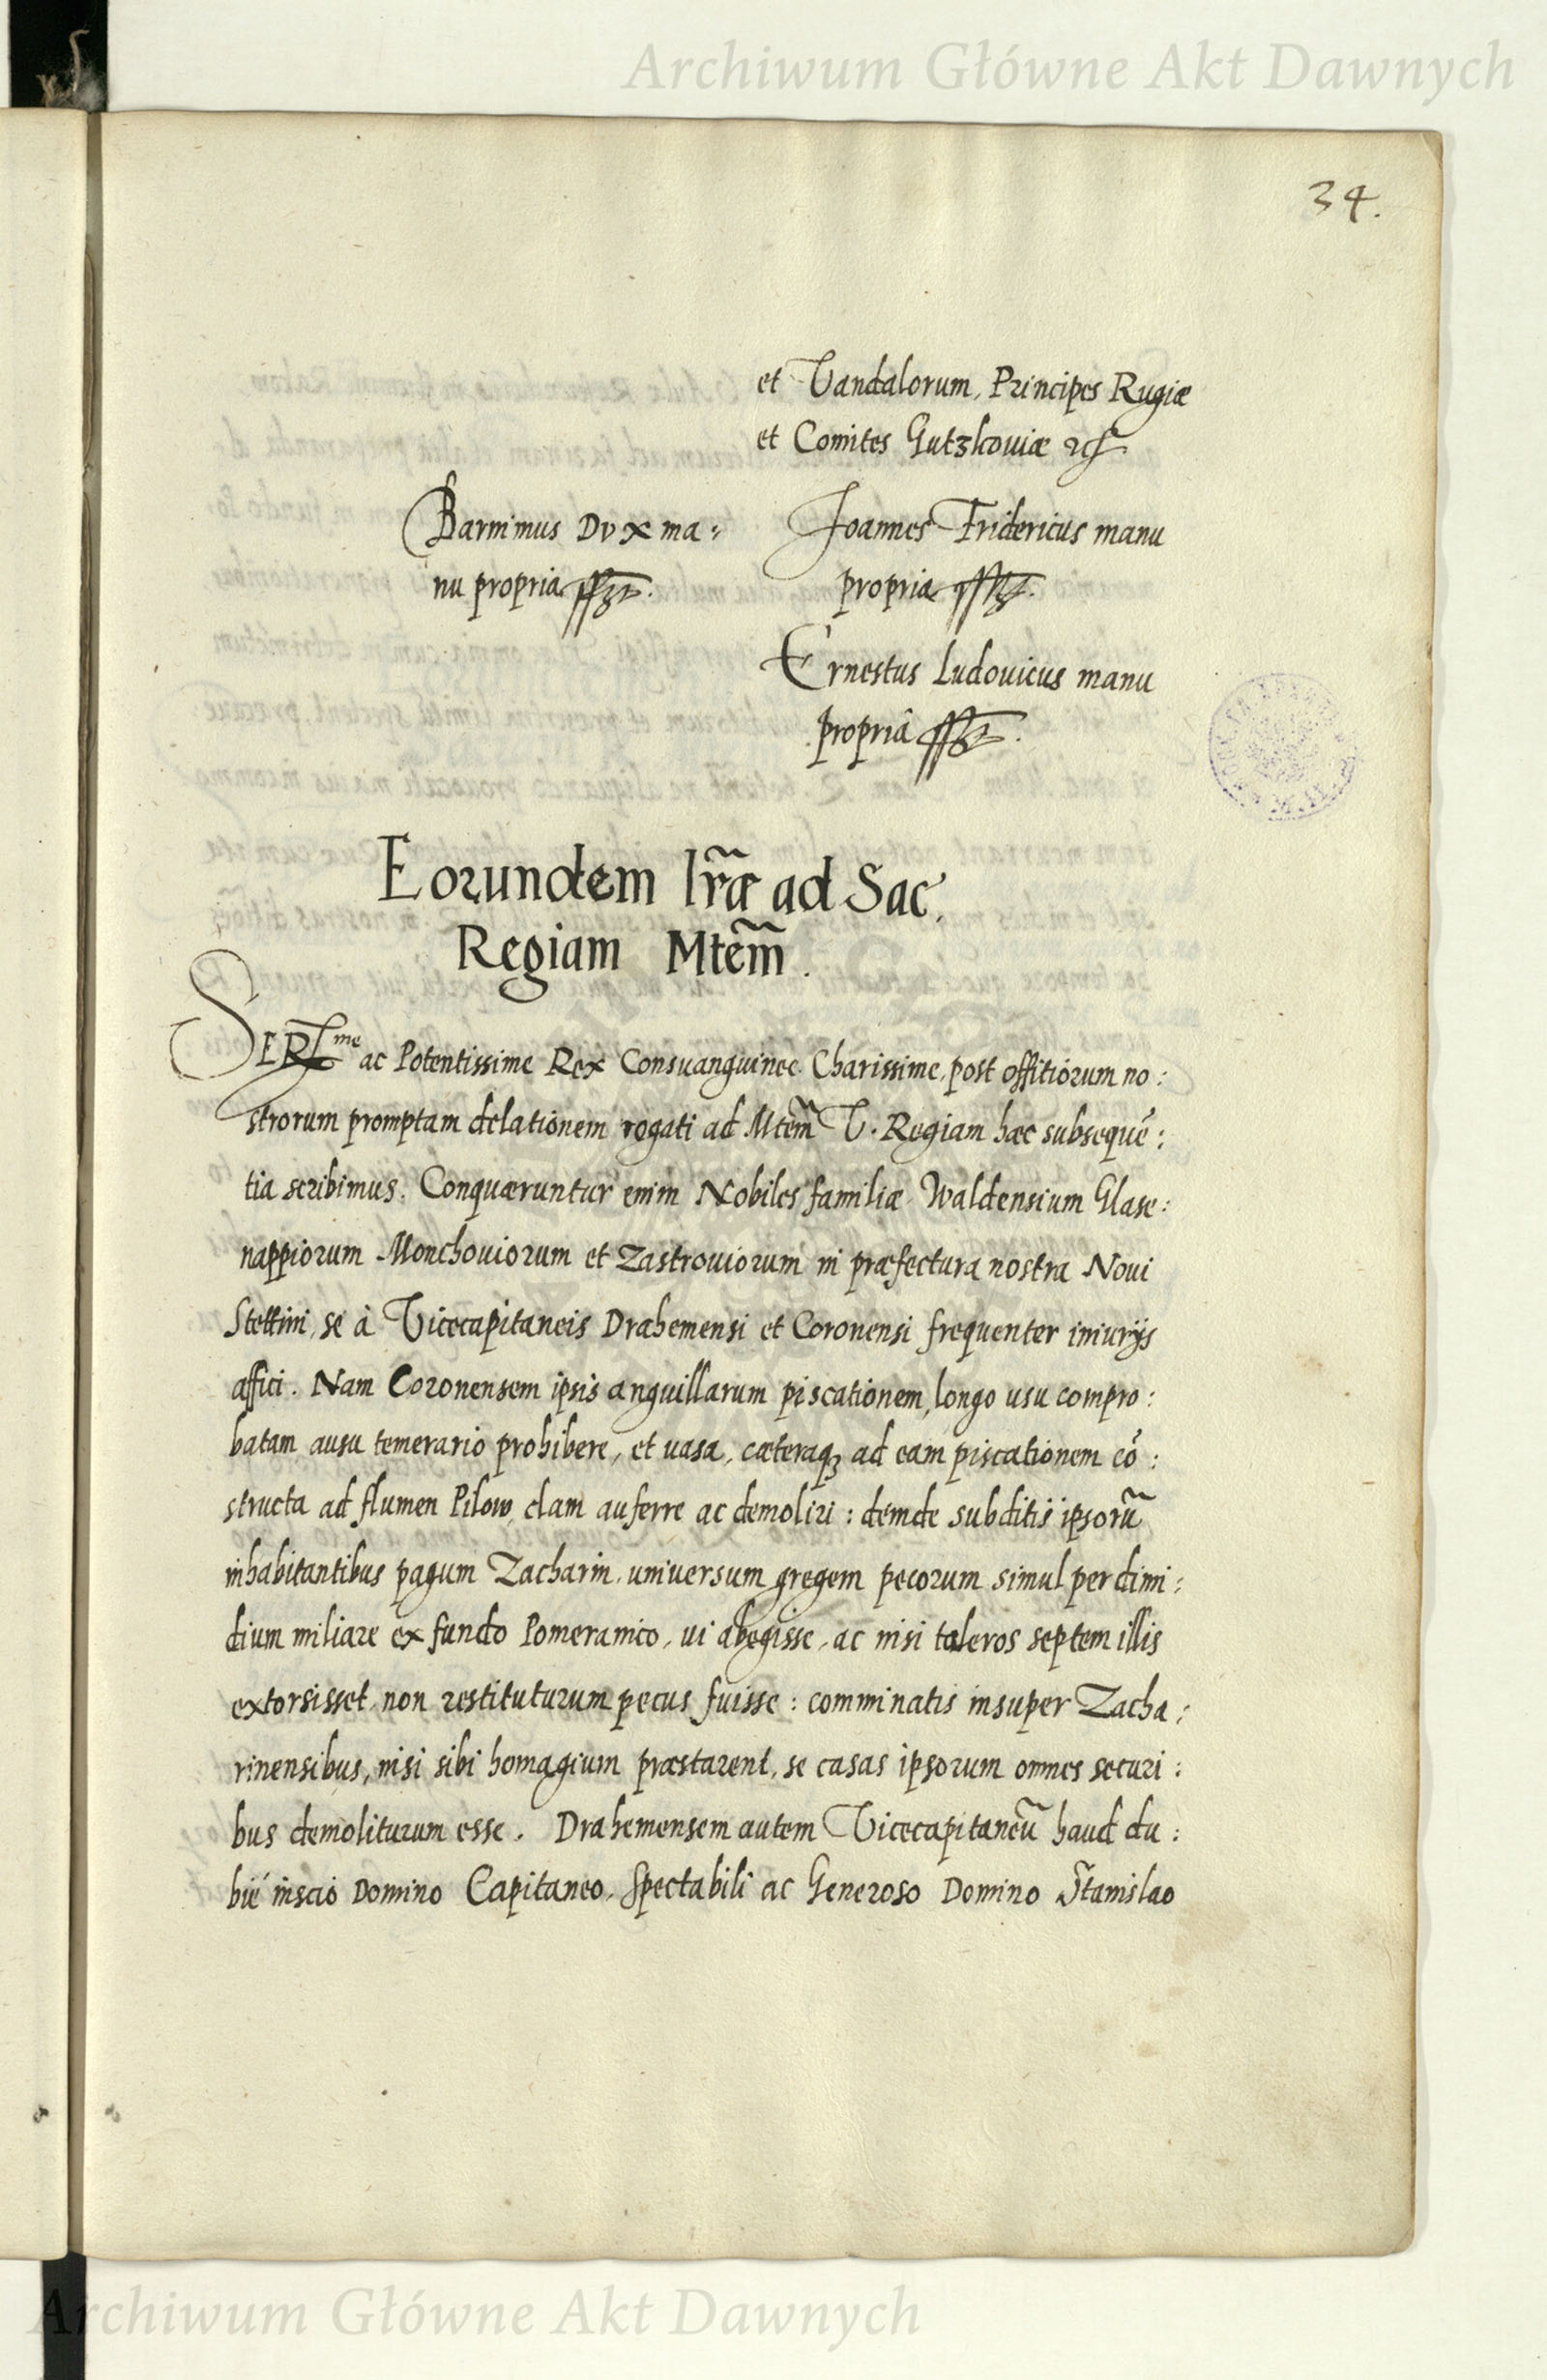 Archiwum Główne Akt Dawnych
34.
et Vandalorum, Principes Rugiæ
et Comites Gutzkouiæ
Barnimus Dux ma:
nu propria
Joannes Fridericus manu
propria
Ernestus Ludouicus manu
propriâ
Eorundem lr̃æ ad Sac.
Regiam Mtem̃.
SERme ac Potentissime Rex Consuanguinee Charissime, post offitiorum no:
strorum promptam delationem rogati ad Mtem̃ V. Regiam hæc subsequẽ:
tia scribimus. Conquæruntur enim Nobiles familiæ Waldensium Glase:
nappiorum Monchouiorum et Zastrouiorum in præfectura nostra Noui
Stettini, se à Vicecapitaneis Drahemensi et Coronensi frequenter iniurijs
affici. Nam Coronensem ipsis anguillarum piscationem, longo usu compro:
batam, ausu temerario prohibere, et uasa, cæteraq; ad eam piscationem cõ:
structa ad flumen Pilow, clam auferre ac demoliri: deinde subditis ipsorũ
inhabitantibus pagum Zacharin, uniuersum gregem pecorum simul per dimi:
dium miliare ex fundo Pomeranico, ui abegisse, ac nisi taleros septem illis
extorsisset, non restituturum pecus fuisse: comminatis insuper Zacha:
rinensibus, nisi sibi homagium præstarent, se casas ipsorum omnes securi:
bus demoliturum esse. Drahemensem autem Vicecapitaneũ haud du:
biè inscio Domino Capitaneo, Spectabili ac Generoso Domino Stanislao
Archiwum Główne Akt Dawnych